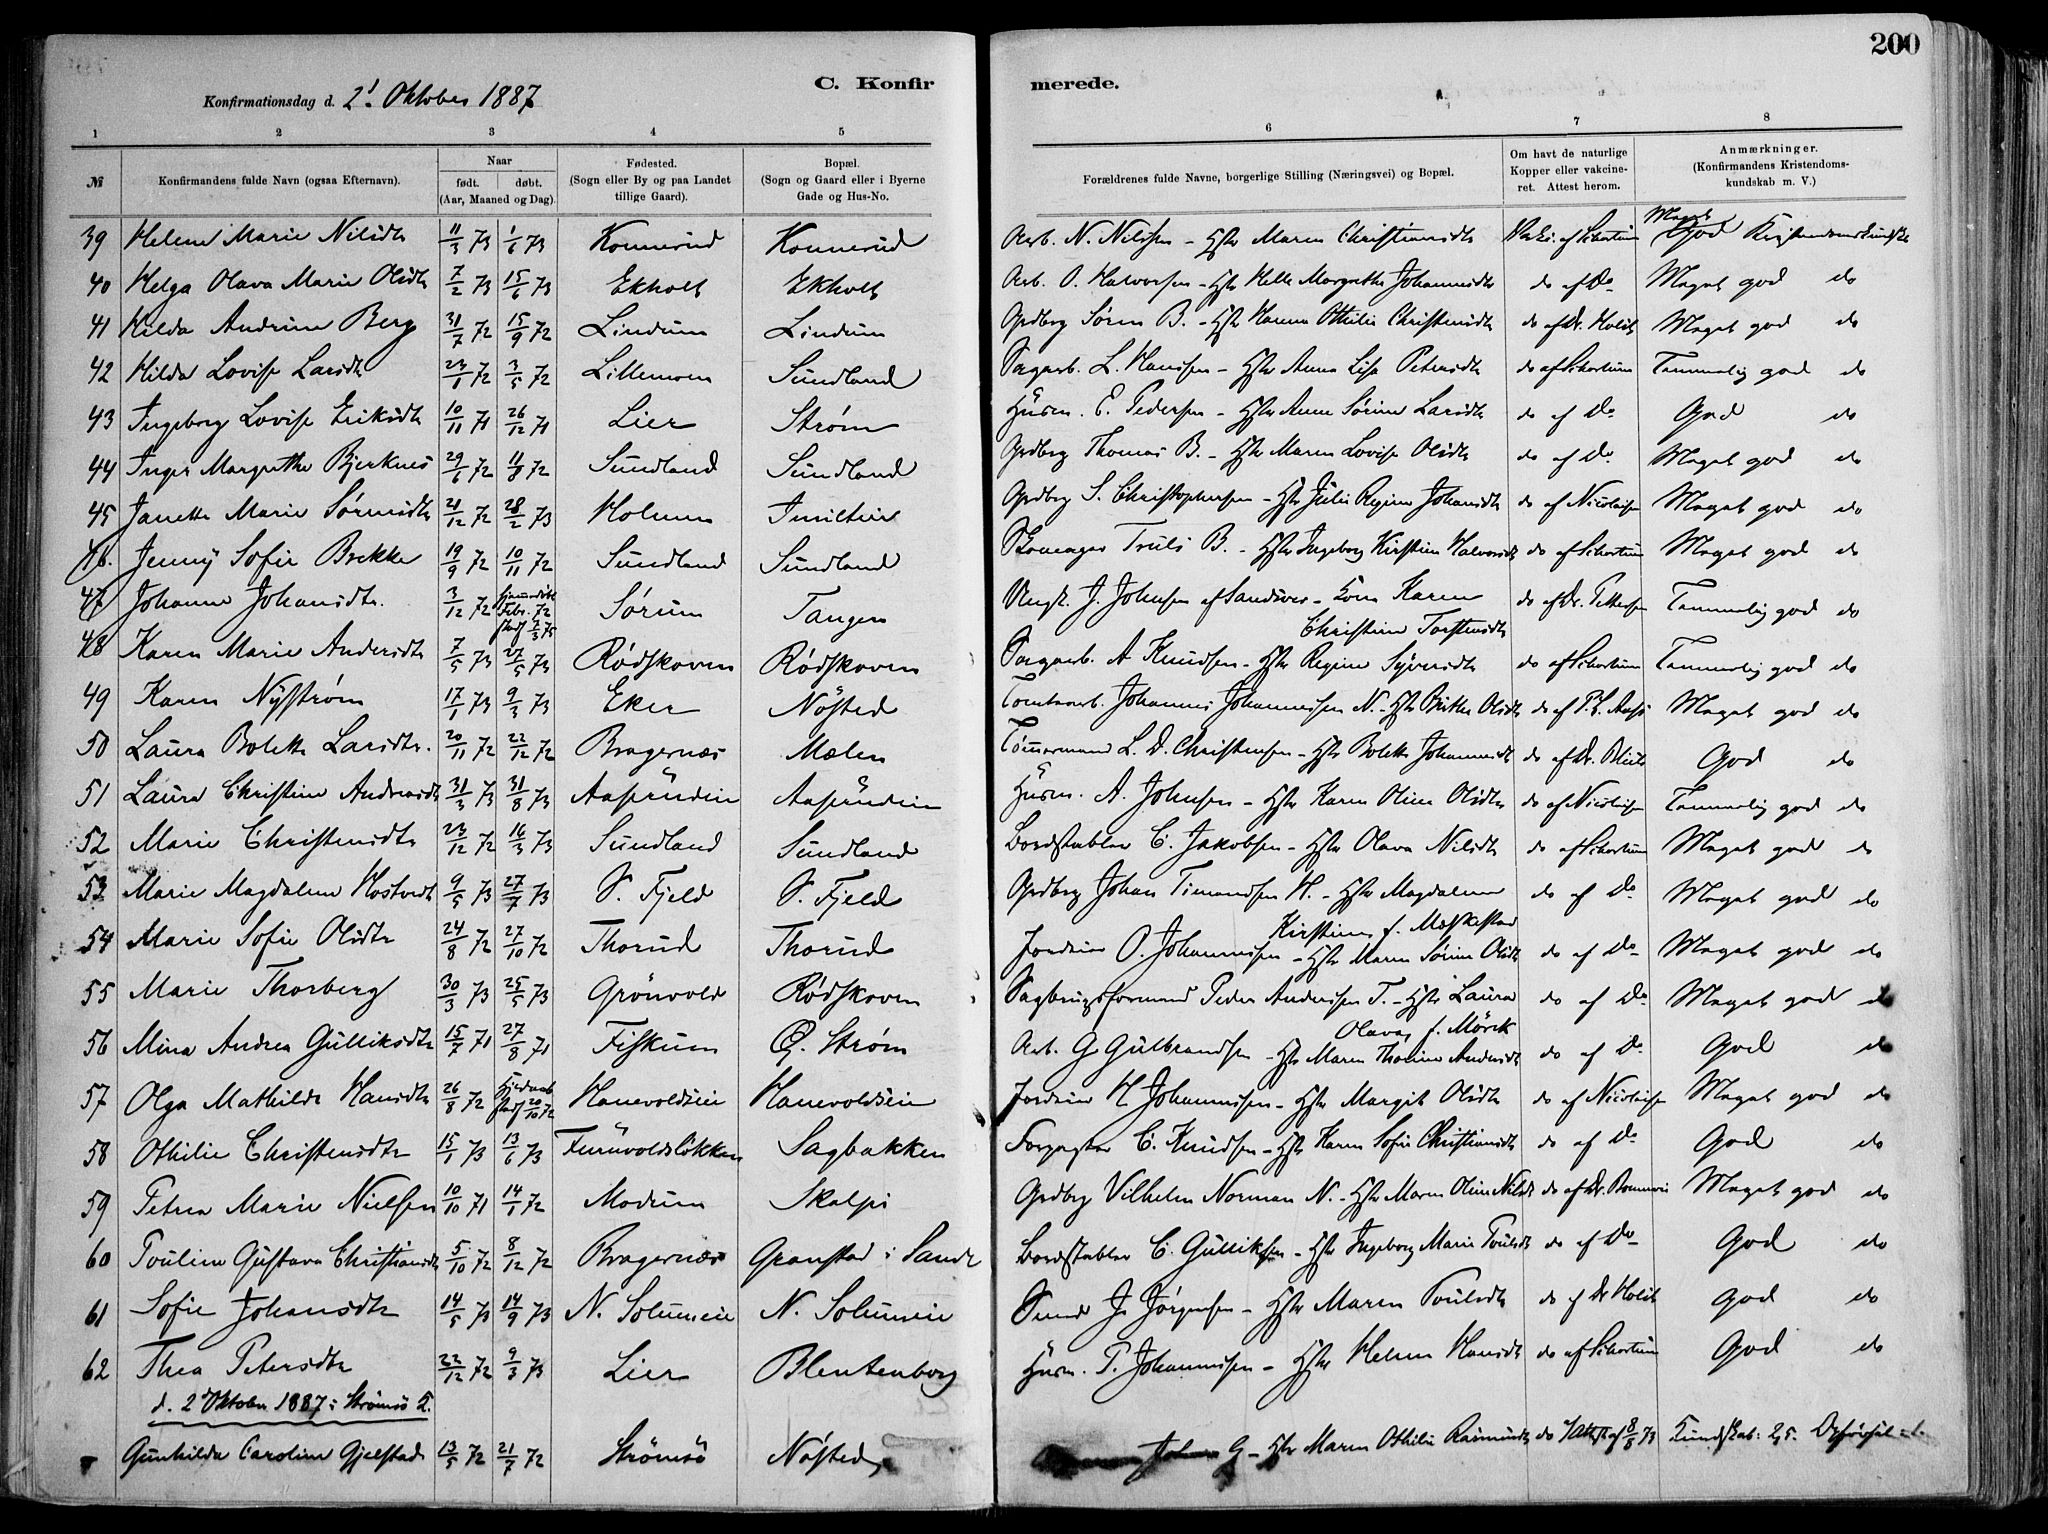 200
Konfirmationsdag d. 2' Oktober 1887 C. Konfir merede.
1 2 3 4 5 6 7 8
№ Konfirmandens fulde Navn (ogsaa Efternavn). Naar født. døbt. (Aar, Maaned og Dag). Fødested. (Sogn eller By og paa Landet tillige Gaard). Bopæl. (Sogn og Gaard eller i Byerne Gade og Hus-No. Forældrenes fulde Navne, borgerlige Stilling (Næringsvei) og Bopæl. Om havt de naturlige Kopper eller vakcineret. Attest herom. Anmærkninger. (Konfirmandens Kristendomskundskab m. V.)
39 Helene Marie Nilsdtr 11/3 73 1/6 73 Konnerud Konnerud Arb. N. Nilsen - Hstr Maren Christiansdtr Vakc. af Schartum Meget God Kristendomskundsk
40 Helga Olava Marie Olsdtr 7/2 73 15/6 73 Ekholt Ekholt Arb. O. Halvorsen - Hstr Helle Margrethe Johannesdtr do af Do Meget god do
41 Hilda Andrine Berg 31/7 72 15/9 72 Lindum Lindum Grdbrg Søren B. - Hstr Karen Othilie Christensdtr do af Dr. Holst Meget god do
42 Hilda Lovise Larsdtr 23/1 72 3/5 72 Lillemoen Sundland Sagarb. L. Hansen - Hstr Anne Lise Petersdtr do af Schartum Temmelig god do
43 Ingeborg Lovise Eriksdtr 10/11 71 26/12 71 Lier Strøm Husm. E. Pedersen - Hstr Anne Sørine Larsdtr do af Do God do
44 Inger Margrethe Bjerknes 29/6 72 11/8 72 Sundland Sundland Grdbrg Thomas B. - Hstr Maren Lovise Olsdtr do af Do Meget god do
45 Janette Marie Sørensdtr 21/12 72 28/2 73 Holmen Grdbrg S. Christophersen - Hstr Julie Regine Johansdtr do af Nicolaisen Meget god do
46. Jenny Sofie Brekke 19/9 72 10/11 72 Sundland Sundland Skomager Truls B. - Hstr Ingeborg Kirstine Halvorsdtr do af Schartum Meget god do
47 Johanne Johansdtr. 3/12 72 hjemmedøbt Febr. 72 stadf 2/3 75 Sørum Tangen Ungk. J. Johnsen af Sandsvær - Kone Karen Christine Torstensdtr do af Dr. Pettersen Temmelig god do
48 Karen Marie Andersdtr 7/5 73 27/5 73 Rødskoven Rødskoven Sagarb. A Knudsen - Hstr Regine Syversdtr do af Schartum Temmelig god do
49 Karen Nystrøm 17/1 73 9/3 73 Eker Nøsted Tomtearb. Johannes Johannessen N. - Hstr Birthe Olsdtr do af P. L. Aass Meget god do
50 Laura Bolette Larsdtr. 20/11 72 22/12 72 Bragernæs Mælen Tømmermand L. D. Christensen - Hstr Bolette Johannesdtr do af Dr. God do
51 Laura Christine Andreasdtr 31/3 73 31/8 73 Aasrudeie Aasrudeie Husm. A. Johnsen - Hstr Karen Oline Olsdtr do af Nicolaisen Temmelig god do
52 Marie Christensdtr 23/12 72 16/3 73 Sundland Sundland Bordstabler C. Jakobsen - Hstr Olava Nilsdtr do af Schartum Meget god do
53 Marie Magdalene Hostvedt 9/5 73 27/7 73 S. Fjeld S. Fjeld Grdbrg Johan Timandsen H. - Hstr Magdalene Kirstine, f. Mæskestad do af Do Meget god do
54 Marie Sofie Olsdtr 24/8 72 27/10 72 Thorud Thorud Jordeier O. Johannessen - Hstr Maren Sørine Olsdtr do af Do Meget god do
55 Marie Thorberg 30/3 73 25/5 73 Grønvold Rødskoven Sagbrugsformand Peder Andersen T. - Hstr Laura Olava, f. Mørck do af Do Meget god do
56 Mina Andrea Gulliksdtr 15/7 71 27/8 71 Fiskum Ø. Strøm Arb. G Gulbrandsen - Hstr Maren Thorine Andersdtr do af Do God do
57 Olga Mathilde Hansdtr 26/8 72 Hjemdøbt stadf 20/10 72 Hanevoldseie Hanevoldseie Jordeier H Johannessen - Hstr Margit Olsdtr do af Nicolaisen Meget god do
58 Othilie Christensdtr 15/1 73 13/6 73 Furuvoldsløkken Sagbakken Forpagter C. Knudsen - Hstr Karen Sofie Christiansdtr do af Do God do
59 Petrea Marie Nielsen 10/10 71 14/1 72 Modum Skalpi Grdbrg Vilhelm Norman N. - Hstr Maren Oline Nilsdtr do af Dr. Meget god do
60 Pouline Gustava Christiansdtr 5/10 72 8/12 72 Bragernæs Granstad i Sande Bordstabler C. Gulliksen - Hstr Ingeborg Marie Poulsdtr do af Do God do
61 Sofie Johansdtr 14/5 73 14/9 73 N. Solumeie N. Solumeie Smed J. Jørgensen - Hstr Maren Poulsdtr do af Dr Holst god do
62 Thea Petersdtr 22/12 72 9/3 73 Lier Blentenborg Husm. P. Johannessen - Hstr Helene Hansdtr do af Schartum God do
d. 2 Oktober 1887 i Strømsø K.
Gunhilda Caroline Gjelstad 13/5 72 21/7 72 Strømsø Nøsted Johan G - Hstr Maren Othilie Rasmusdtr do Attest af 8/8 73 Kundskab: 2,5.